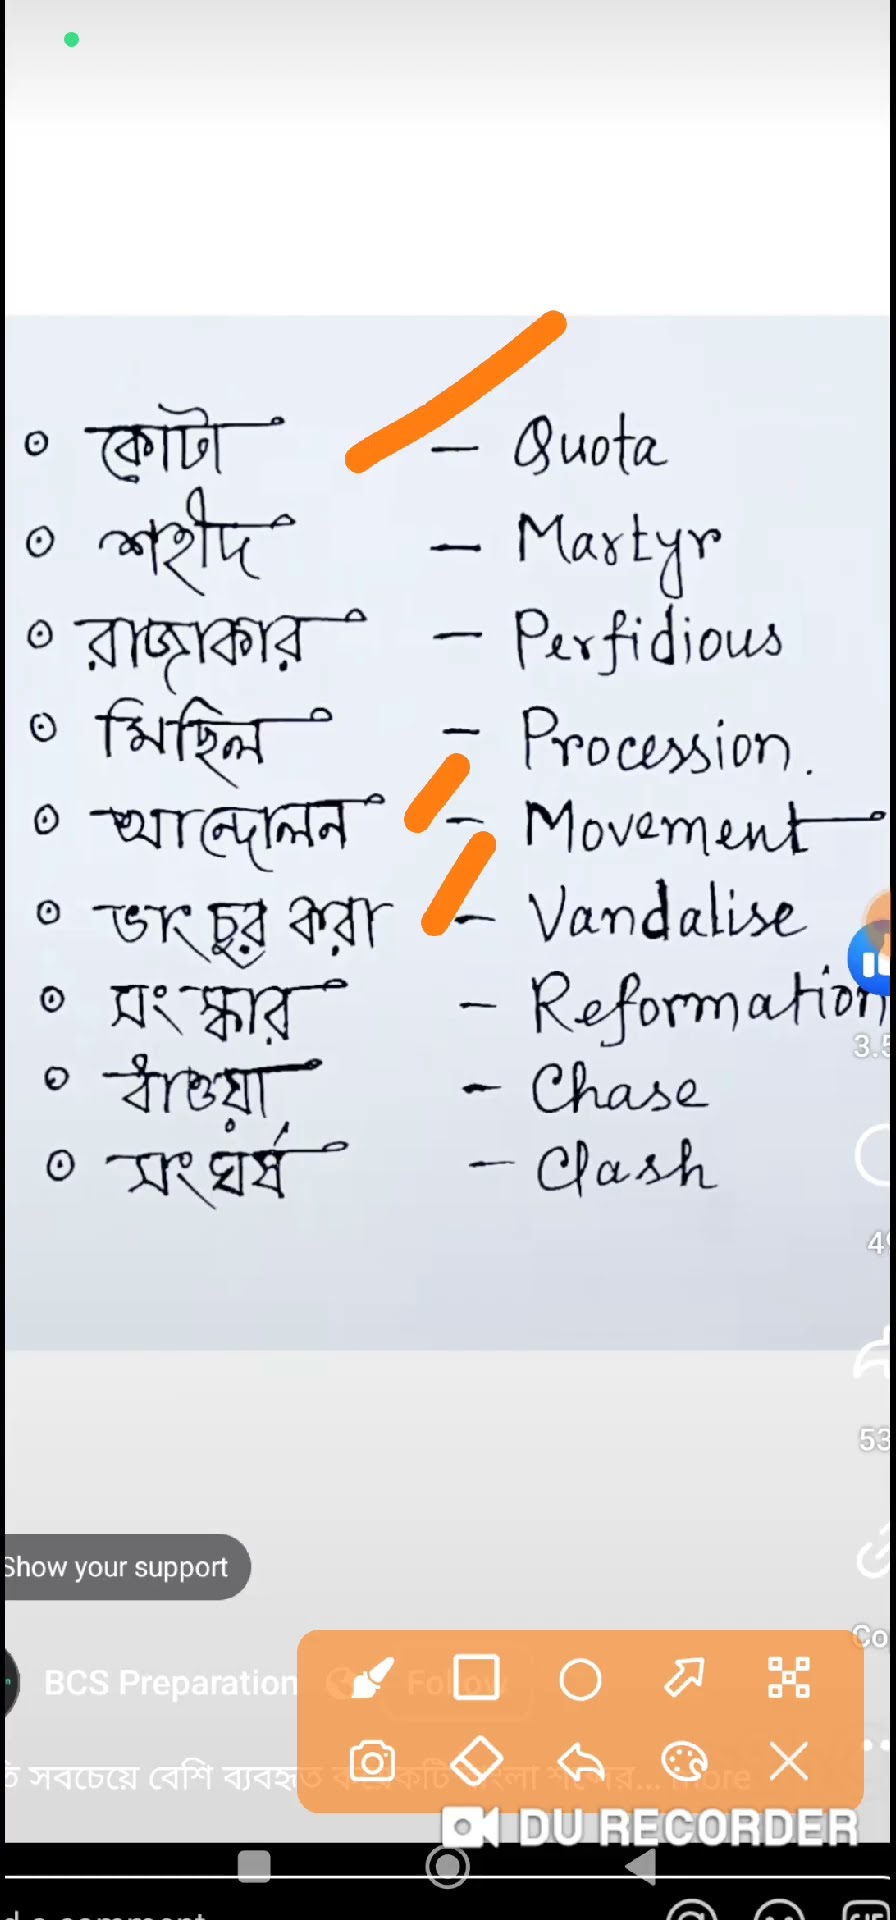 কোটা - Quota
শহীদ - Martyr
রাজাকার - Perfidious
মিছিল - Procession.
আন্দোলন - Movement
ভাংচুর করা - Vandalise
সংস্কার - Reformation
ধাওয়া - Chase
সংঘর্ষ - Clash
3.5
49
53
Show your support
Co
BCS Preparation Follow
সবচেয়ে বেশি ব্যবহৃত কয়েকটি বাংলা শব্দের... more
DU RECORDER